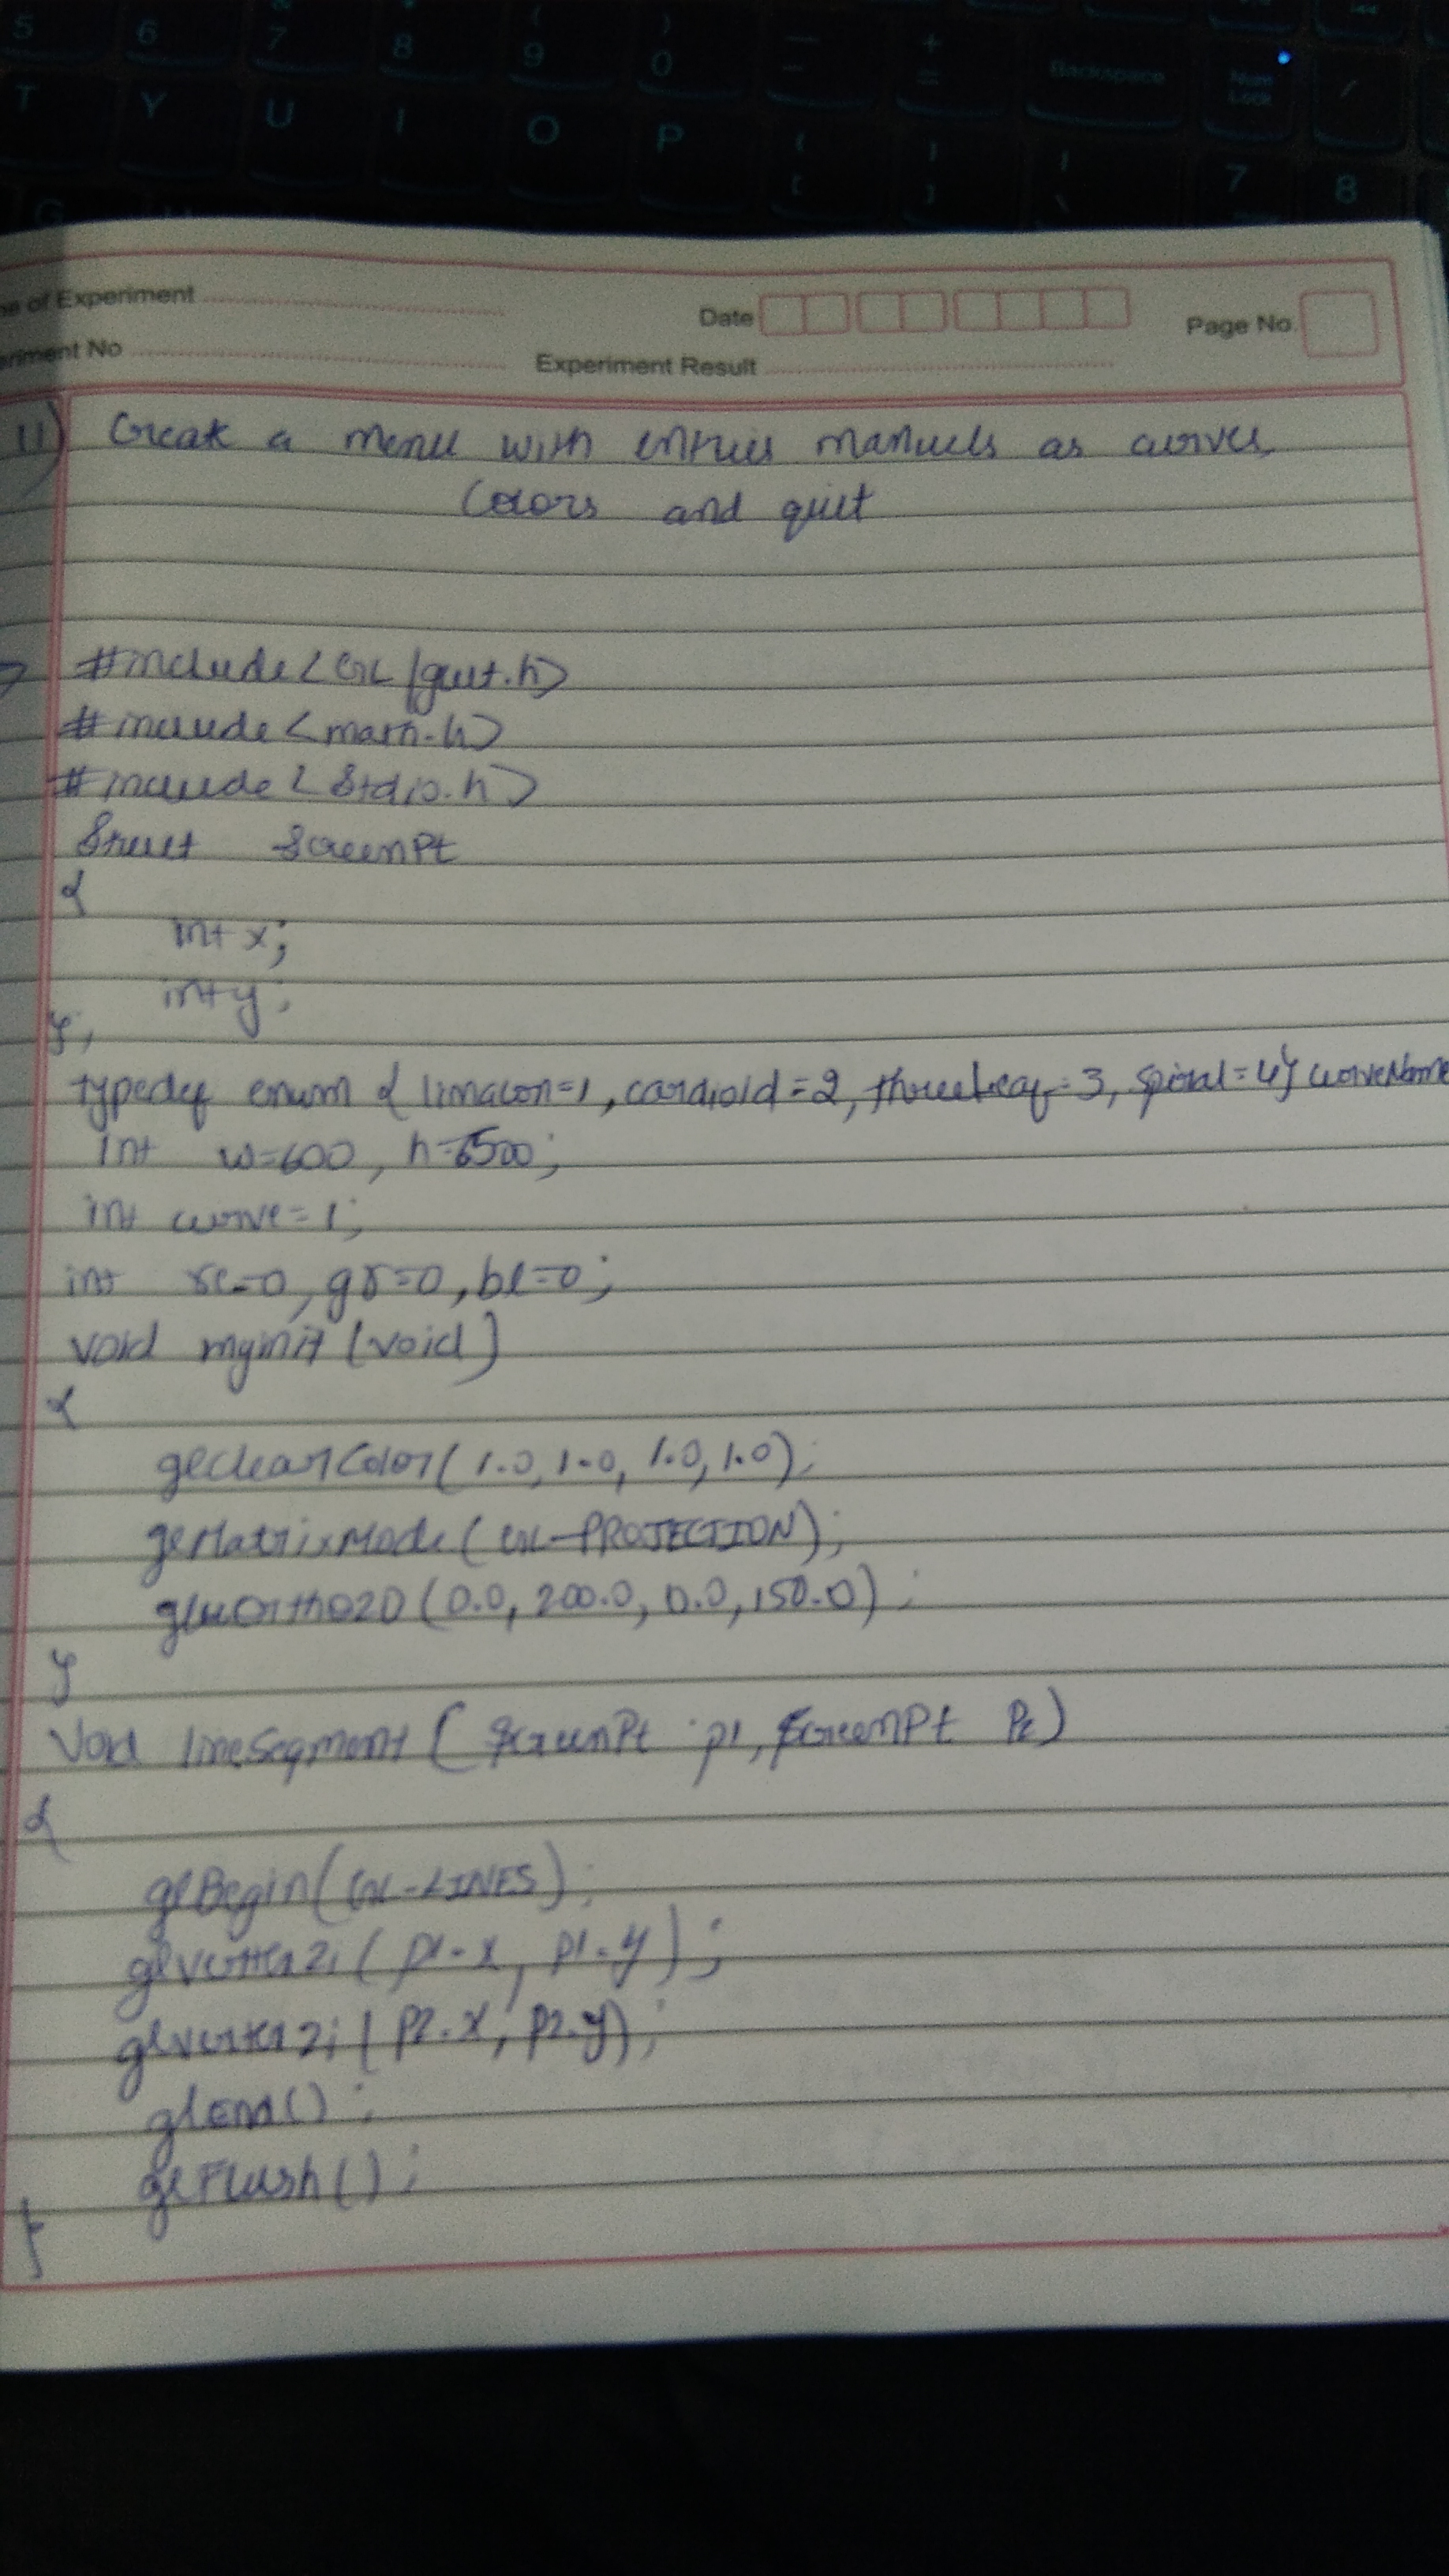 5 6 7 8 ( 9 ) 0 — - + = Backspace Num Lock /
T Y U I O P { [ } ] | \ 7 8
G
ne of Experiment Date Page No.
eriment No Experiment Result
11) Create a menu with entries manuels as curves,
Colors and quit
#include<GL/glut.h>
#include<math.h>
#include<stdio.h>
Struct ScreenPt
{
int x;
int y;
};
typedef enum { limacon=1, cardioid=2, threeLeaf=3, spiral=4} curveName
int w=600, h=500;
int curve=1;
int re=0, gr=0, bl=0;
void myinit(void)
{
glclearColor(1.0, 1.0, 1.0, 1.0);
glMatrixMode(GL-PROJECTION);
gluOrtho2D(0.0, 200.0, 0.0, 150.0);
}
Void lineSegment(ScreenPt p1, ScreenPt P2)
{
glBegin(GL-LINES);
glvertex2i(p1.x, p1.y);
glvertex2i(p2.x, p2.y);
glEnd();
glFlush();
}